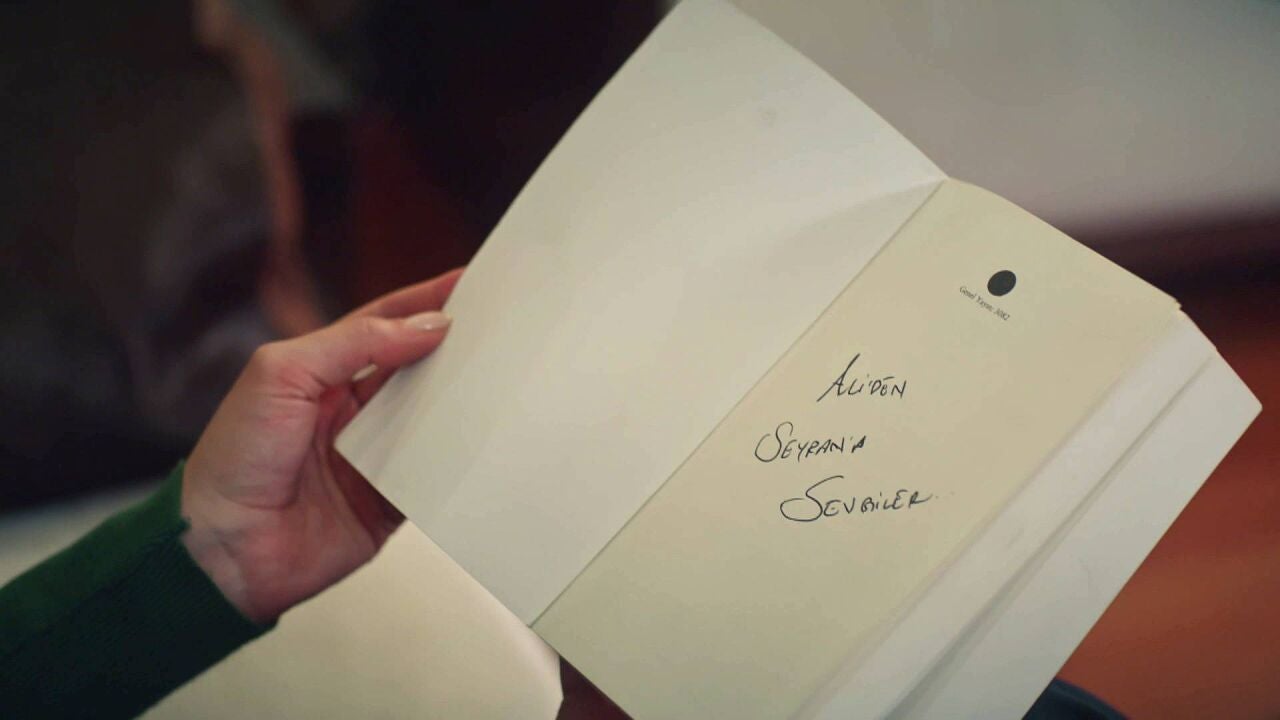 Genel Yayın: 3082
ALİ'DEN
SEYRAN'A
SEVGİLER..